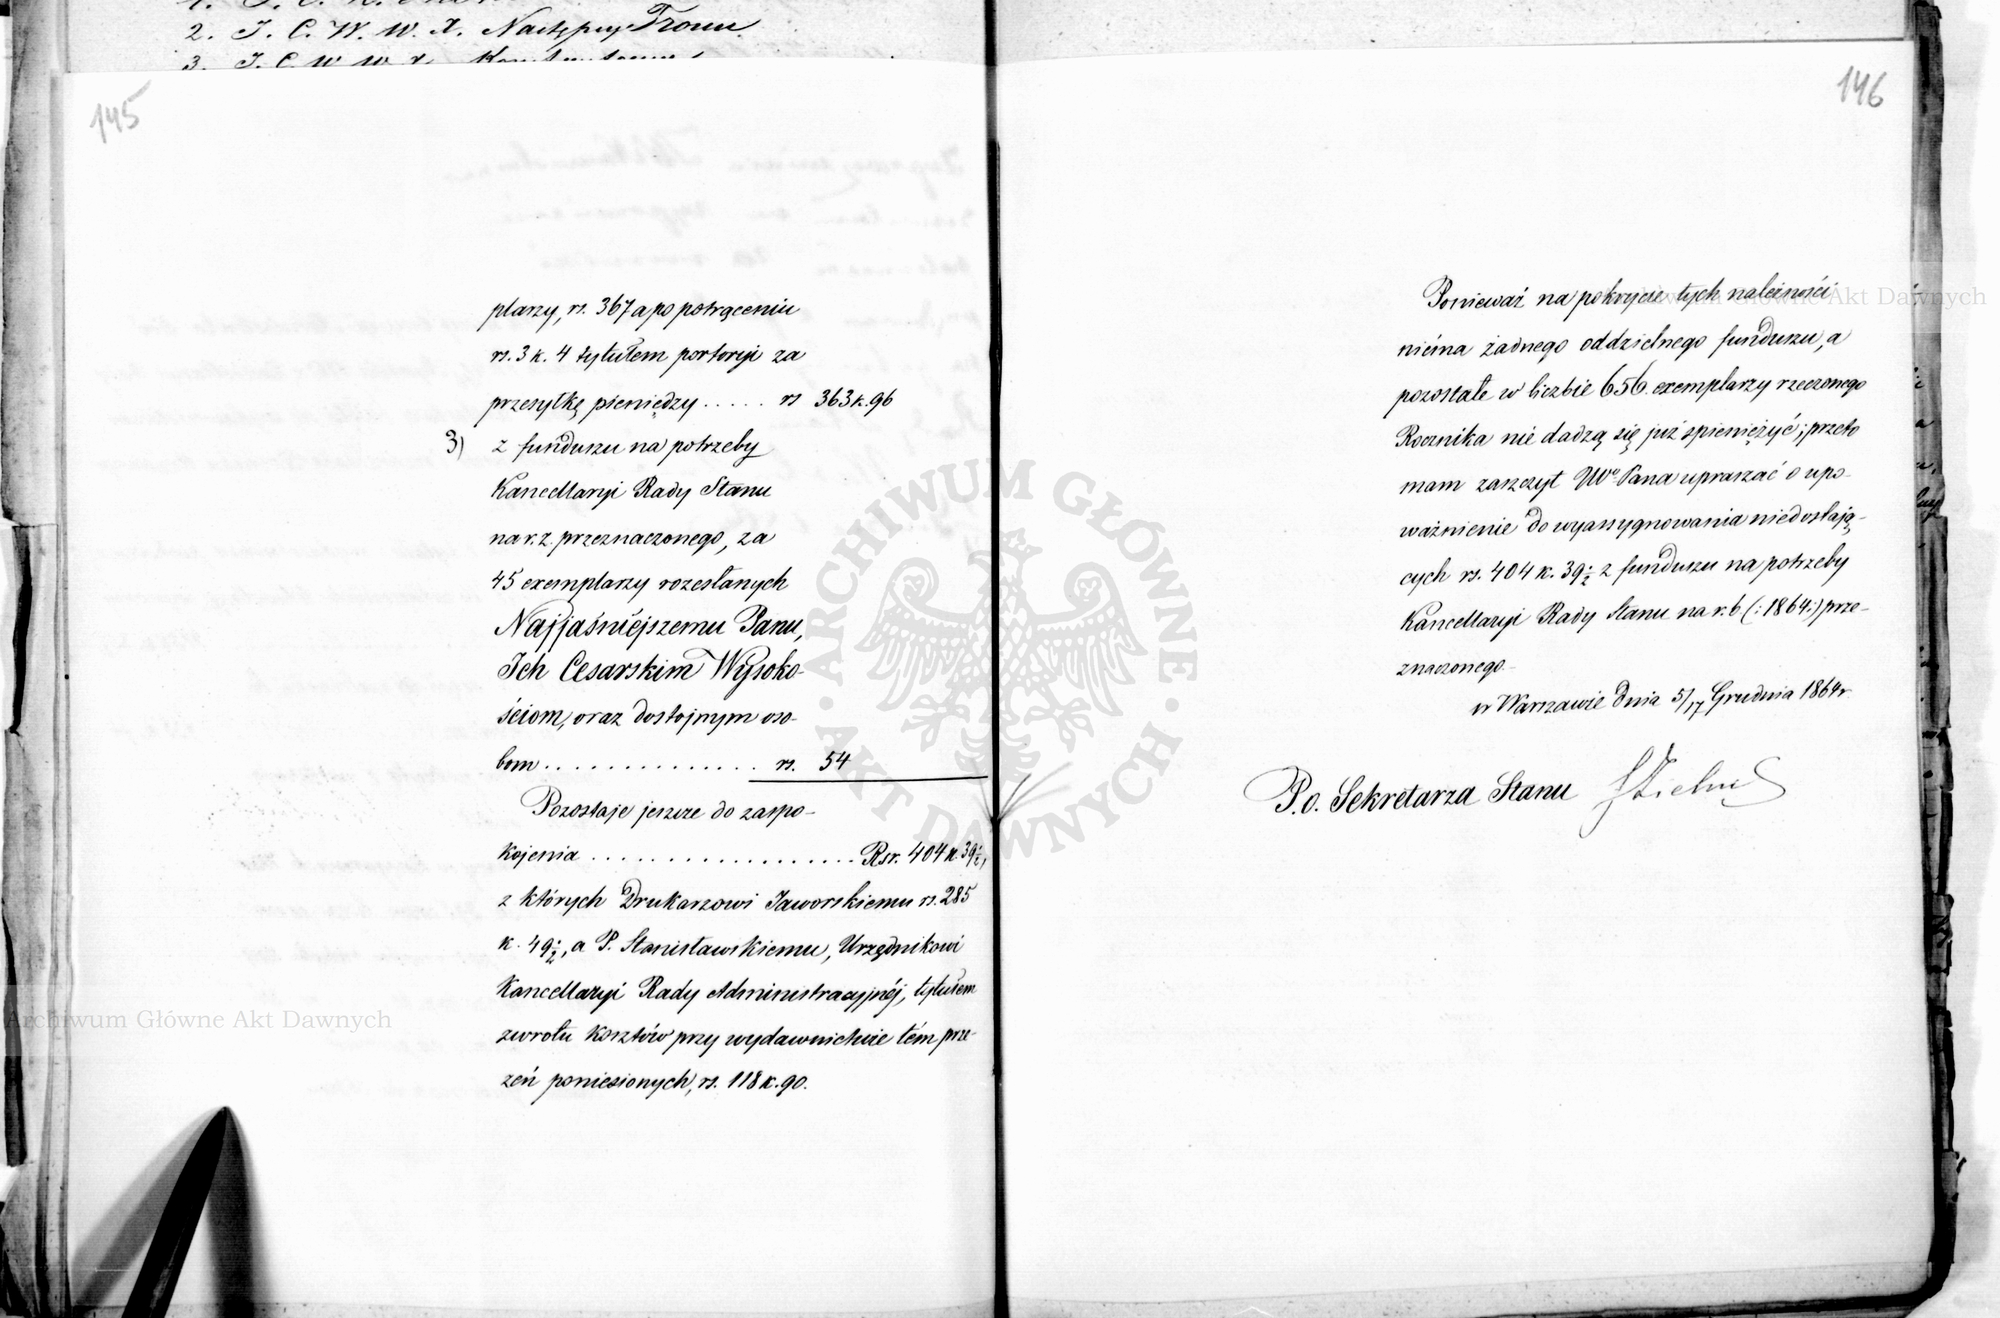 2. J. C. W. W. X. Następcy Tronu
3. J. C. W. W. X.
145
plarzy, rs. 367 a po potrąceniu
rs. 3 k. 4 tytułem portoryi za
przesyłkę pieniędzy ..... rs 363 k. 96
3) z funduszu na potrzeby
Kancellaryi Rady Stanu
na r. z. przeznaczonego, za
45 exemplarzy rozesłanych
Najjaśniéjszemu Panu,
Ich Cesarskim Wysoko-
ściom, oraz dostojnym oso-
bom .............. rs. 54
Pozostaje jeszcze do zaspo-
kojenia .................. Rsr. 404 k. 39½,
z których Drukarzowi Jaworskiemu rs. 285
k. 49½, a P. Stanisławskiemu, Urzędnikowi
Kancellaryi Rady Administracyjnéj, tytułem
zwrotu kosztów przy wydawnictwie tém prze-
zeń poniesionych, rs. 118 k. 90.
146
Ponieważ na pokrycie tych należności
niéma żadnego oddzielnego funduszu, a
pozostałe w liczbie 656 exemplarzy rzeczonego
Rocznika nie dadzą się już spieniężyć; przeto
mam zaszczyt Wo Pana upraszać o upo-
ważnienie do wyassygnowania niedostają-
cych rs. 404 k. 39½ z funduszu na potrzeby
Kancellaryi Rady Stanu na r. b (: 1864 :) prze-
znaczonego.
w Warszawie dnia 5/17 Grudnia 1864 r.
P. o. Sekretarza Stanu
ARCHIWUM GŁÓWNE · AKT DAWNYCH ·
Archiwum Główne Akt Dawnych
Archiwum Główne Akt Dawnych